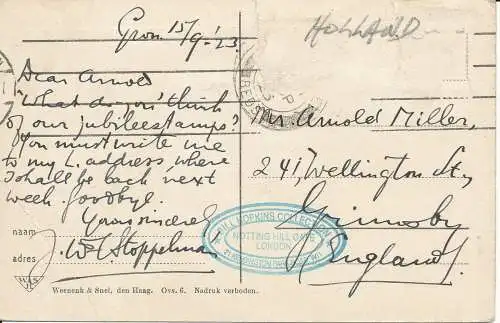 Gron. 15/9-'23
HOLLAND
Dear Arnold
What do you think
of our jubileestamps?
You must write me
to my L. address, where
I shall be back next
week. Goodbye.
Yours sincerely
W Stoppelman
naam
adres
Mr. Arnold Miller,
241, Wellington St.,
Grimsby
England
HOPKINS COLLECTION
NOTTING HILL GATE
LONDON
Weenenk & Snel, den Haag. Ovs. 6. Nadruk verboden.